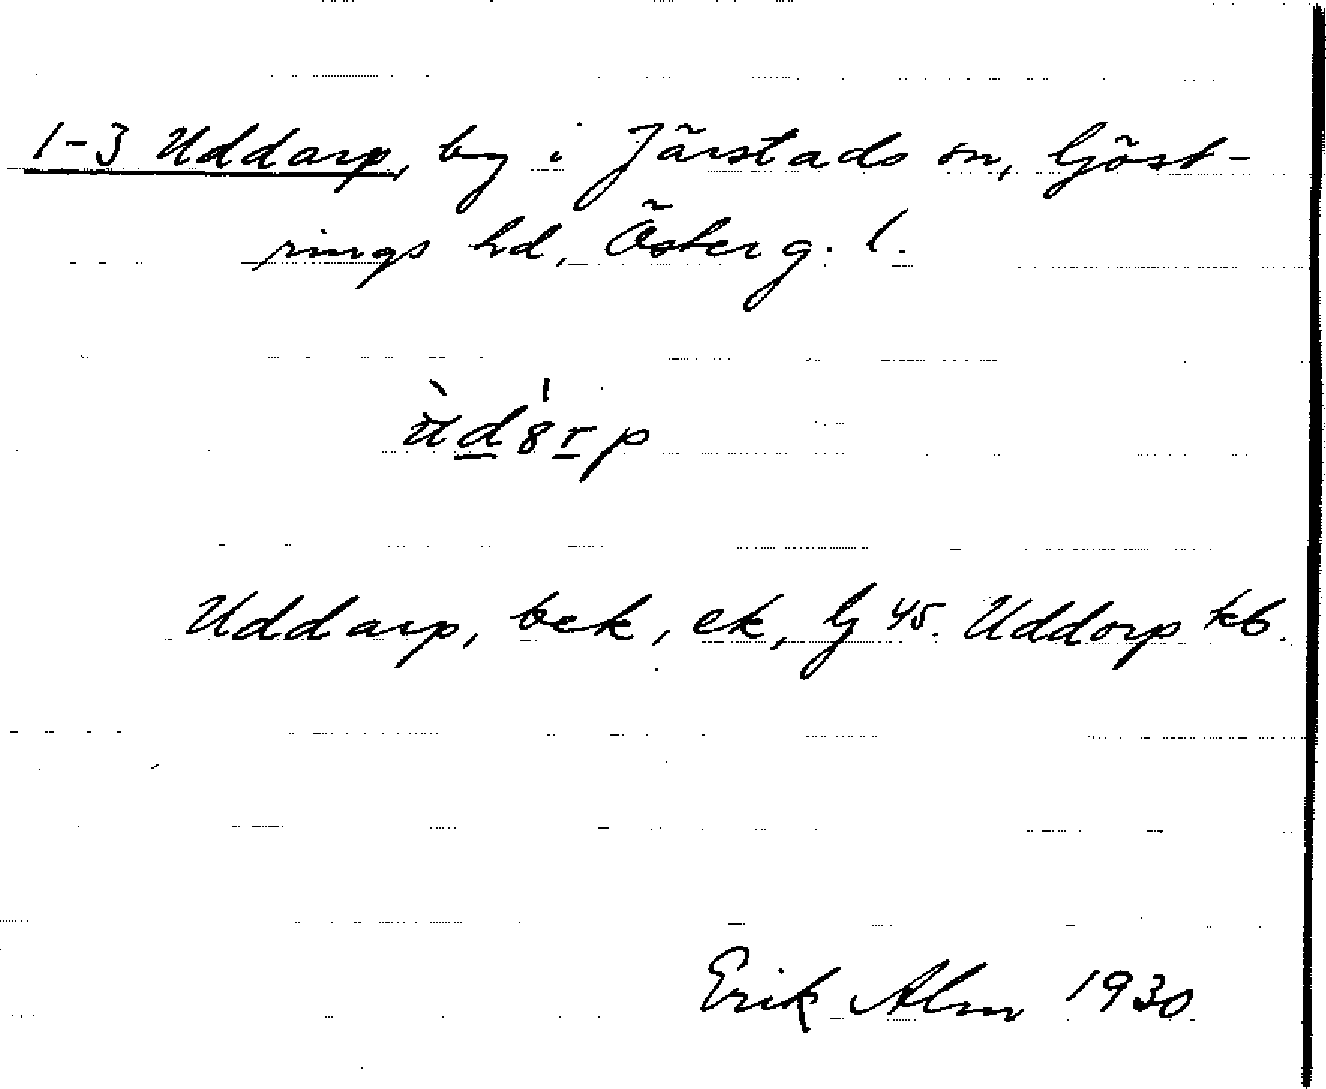 1-3 Uddarp, by i Järstads sn, Göst-
rings hd, Österg. l.
Uddarp, bek, ek, lj 45. Uddorp kb.
Erik Alm 1930